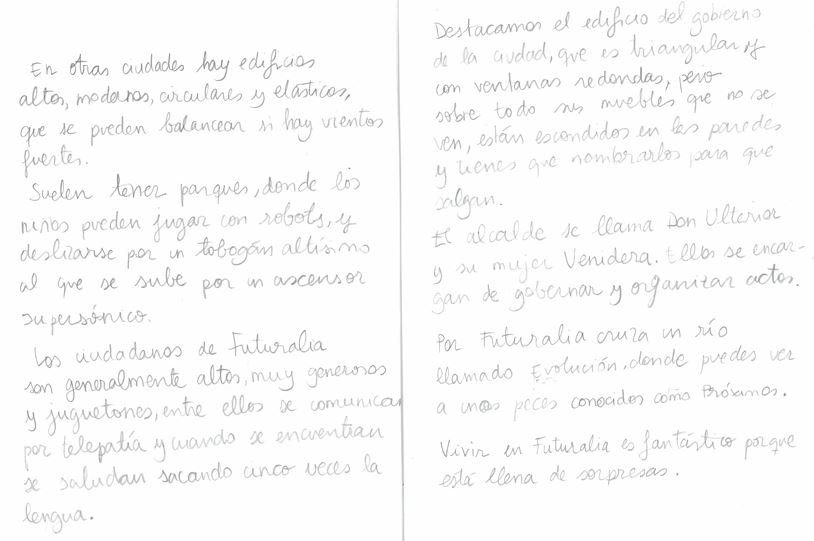 En otras ciudades hay edificios
altos, modernos, circulares y elásticos,
que se pueden balancear si hay vientos
fuertes.
Suelen tener parques, donde los
niños pueden jugar con robots, y
deslizarse por un tobogán altísimo
al que se sube por un ascensor
supersónico.
Los ciudadanos de Futuralia
son generalmente altos, muy generosos
y juguetones, entre ellos se comunican
por telepatía y cuando se encuentran
se saludan sacando cinco veces la
lengua.
Destacamos el edificio del gobierno
de la ciudad, que es triangular y
con ventanas redondas, pero
sobre todo sus muebles que no se
ven, están escondidos en las paredes
y tienes que nombrarlos para que
salgan.
El alcalde se llama Don Ulterior
y su mujer Venidera. Ellos se encar-
gan de gobernar y organizar actos.
Por Futuralia cruza un río
llamado Evolución, donde puedes ver
a unos peces conocidos como Próximos.
Vivir en Futuralia es fantástico porque
está llena de sorpresas.